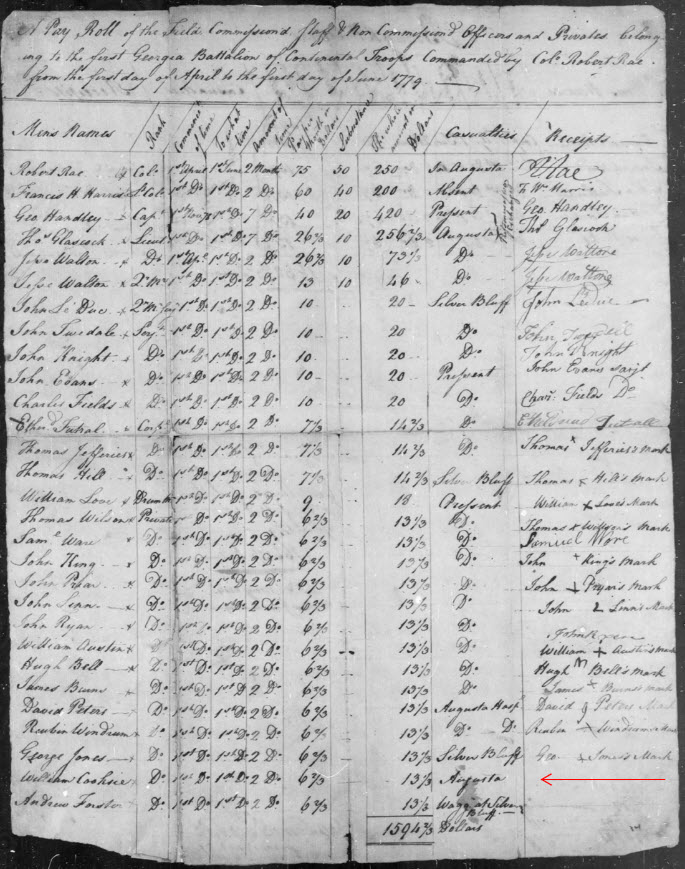 A Pay Roll of the Field Commission'd Staff & Non Commission'd Officers and Privates belong
ing to the first Georgia Battalion of Continental Troops Commanded by Colo. Robert Rae.
from the first day of April to the first day of June 1779.
Mens Names Rank Commenc't of time Amount of time Subsistance Dollars Casualties Receipts
Robert Rae Colo. 1st April 1st June 2 Months 75 50 250 In Augusta R Rae
Francis H. Harris Lt Colo. 1st Do 1st Do 2 Do 60 40 200 Absent Harris
Geo Handley Capt. 1st Do 7 Do 40 20 420 Present Geo. Handley
Thos Glascock Lieut 1st Do 1st Do 7 Do 26⅔ 10 256⅔ Augusta Thos Glascock
Walton Do 1st Apl. 1st Do 2 Do 26⅔ 10 73⅓ Do
Jesse Walton 1st Do 1st Do 2 Do 13 10 46 Do
John Le Duc 1st Do 1st Do 2 Do 10 20 Silver Bluff John
John Twedale Serjt. 1st Do 1st Do 2 Do 10 20 Do John
John Knight Do 1st Do 1st Do 2 Do 10 20 Do John Knight
John Evans Do 1st Do 1st Do 2 Do 10 20 Present John Evans sarjt
Charles Fields Do 1st Do 1st Do 2 Do 10 20 Do Chars. Fields Do
Futral Corpl 1st Do 1st Do 2 Do 7⅓ 14⅔ Do
Thomas Jefferies Do 1st Do 1st Do 2 Do 7⅓ 14⅔ Do Thomas x Jefferies's Mark
Thomas Hill Do 1st Do 1st Do 2 Do 7⅓ 14⅔ Silver Bluff Thomas x Hill's Mark
William Love Drumr 1st Do 1st Do 2 Do 9 18 Present William x Love's Mark
Thomas Wilson Private 1st Do 1st Do 2 Do 6⅔ 13⅓ Do Thomas x Mark
Saml Ware Do 1st Do 1st Do 2 Do 6⅔ 13⅓ Do Samuel
John King Do 1st Do 1st Do 2 Do 6⅔ 13⅓ Do John + King's Mark
John Do 1st Do 1st Do 2 Do 6⅔ 13⅓ Do John + Mark
John Linn Do 1st Do 1st Do 2 Do 6⅔ 13⅓ Do John L Linn's Mark
John Ryan Do 1st Do 1st Do 2 Do 6⅔ 13⅓ Do John
William Austen Do 1st Do 1st Do 2 Do 6⅔ 13⅓ Do William + Austin's Mark
Hugh Bell Do 1st Do 1st Do 2 Do 6⅔ 13⅓ Do Hugh Bell's Mark
James Burns Do 1st Do 1st Do 2 Do 6⅔ 13⅓ Do James + Burns's Mark
David Peters Do 1st Do 1st Do 2 Do 6⅔ 13⅓ Augusta Hosp. David Peters Mark
Reubin Windram Do 1st Do 1st Do 2 Do 6⅔ Do Do
George Jones Do 1st Do 1st Do 2 Do 6⅔ 13⅓ Silver Bluff Geo + Jones's Mark
William Do 1st Do 1st Do 2 Do 6⅔ 13⅓ Augusta
Andrew Forster Do 1st Do 1st Do 2 Do 6⅔ 13⅓ Wagg. at Silver
Bluff
1594⅔ Dollars